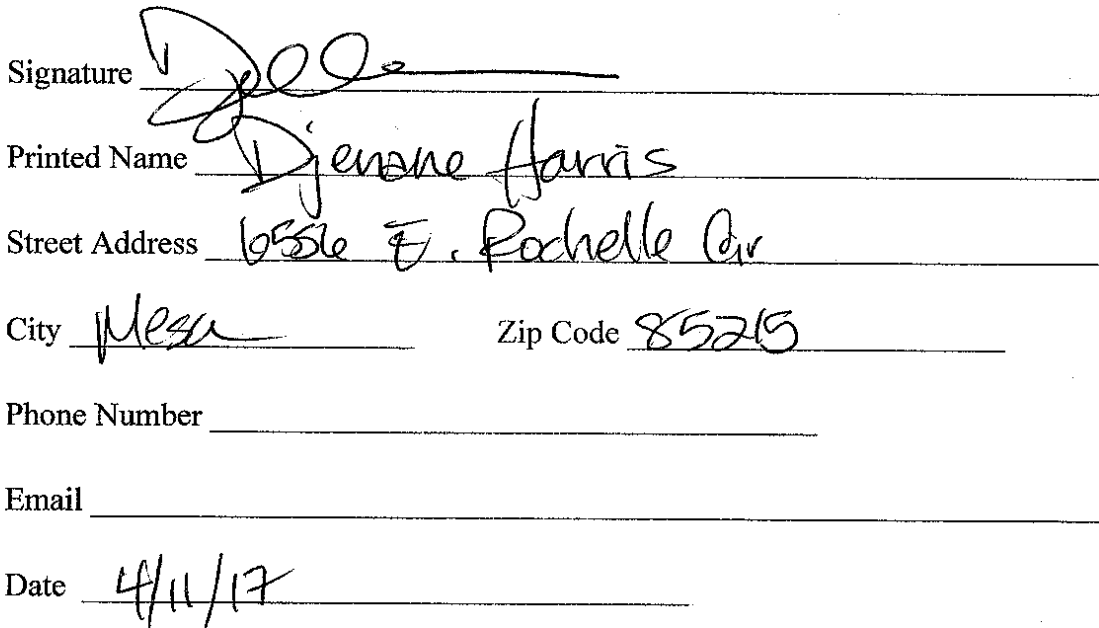 Signature
Printed Name Djenane Harris
Street Address 6556 E. Rochelle Cir
City Mesa Zip Code 85215
Phone Number
Email
Date 4/11/17